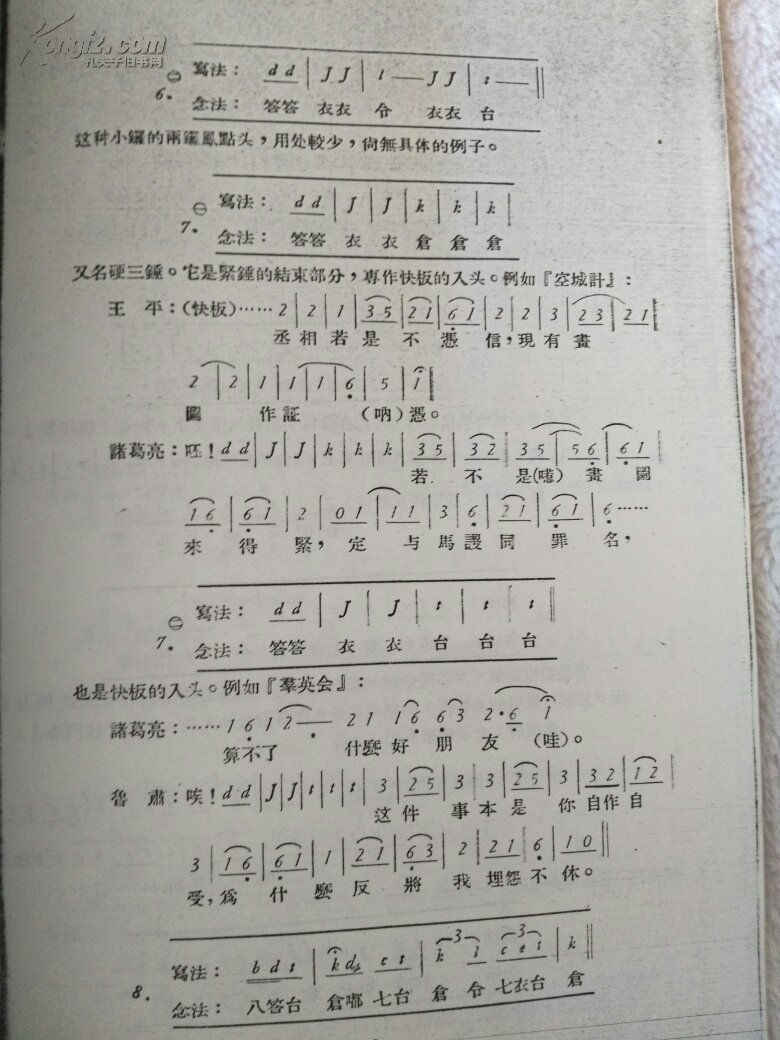 Kongfz.com
孔夫子旧书网
㊀ 寫法： d d | J J | l — J J | t — ‖
6. 念法： 答答 衣衣 令 衣衣 台
这种小鑼的兩鑼鳳點头，用处較少，尙無具体的例子。
㊀ 寫法： d d | J | J | k | k | k |
7. 念法： 答答 衣 衣 倉 倉 倉
又名硬三錘。它是緊錘的結束部分，専作快板的入头。例如『空城計』：
王 平：(快板)…… 2 | 2 | 1 | 3 5 | 2 1 | 6 1 | 2 | 2 | 3 | 2 3 | 2 1 |
丞 相 若 是 不 憑 信，現 有 畫
2 | 2 | 1 | 1 | 1 6 | 5 | 1 ‖
圖 作 証 (吶) 憑。
諸葛亮：呸！d d | J | J | k | k | k | 3 5 | 3 2 | 3 5 | 5 6 | 6 1 |
若 不 是(嗯) 畫 圖
1 6 | 6 1 | 2 | 0 1 | 1 1 | 3 | 6 | 2 1 | 6 1 | 6 ……
來 得 緊，定 与 馬 謖 同 罪 名，
㊁ 寫法： d d | J | J | t | t | t ‖
7. 念法： 答答 衣 衣 台 台 台
也是快板的入头。例如『羣英会』：
諸葛亮：…… 1 6 1 2 — 2 1 1 6 6 3 2 · 6 1
算不了 什麽 好 朋 友 (哇)。
魯 肅：唉！d d | J | J | t | t | t | 3 | 2 5 | 3 | 3 | 2 5 | 3 | 3 2 | 1 2 |
这 件 事 本 是 你 自 作 自
3 | 1 6 | 6 1 | 1 | 2 1 | 6 3 | 2 | 2 1 | 6 | 1 0 ‖
受，爲 什 麽 反 將 我 埋怨 不 休。
寫法： b d t | k d c t | k l c t t | k ‖
8. 念法： 八答台 倉嘟 七台 倉 令 七衣台 倉